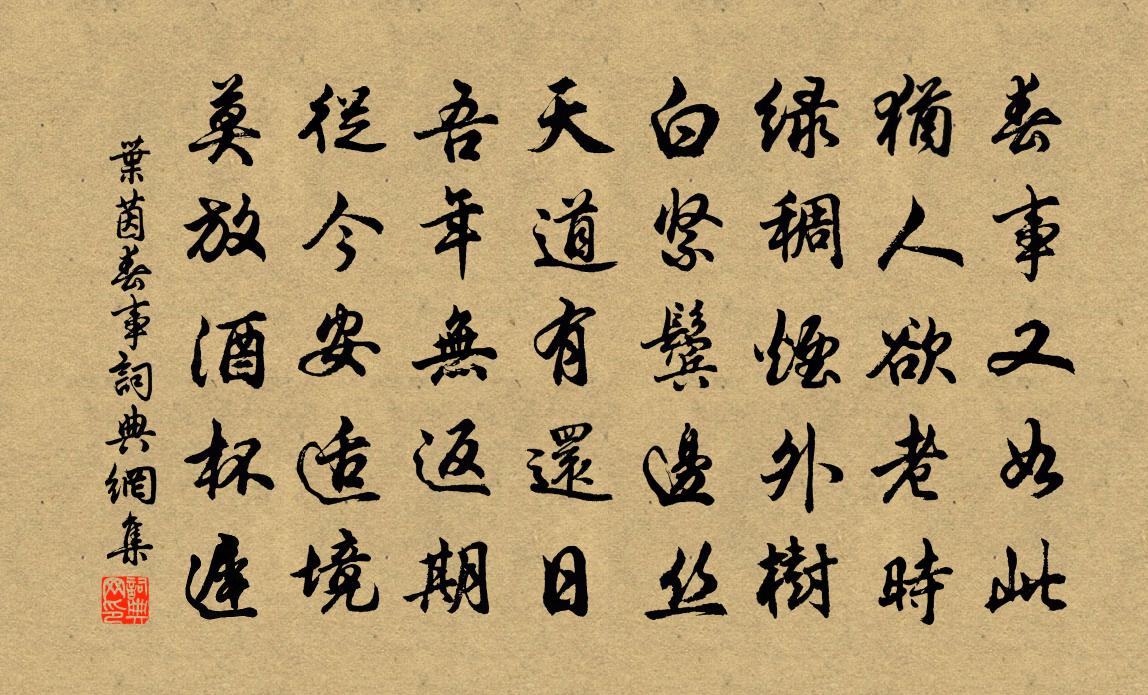 春事又如此
猶人欲老時
緑稠煙外樹
白紧鬢邊丝
天道有還日
吾年無返期
從今安适境
莫放酒杯遲
葉茵春事詞典網集
詞典网印